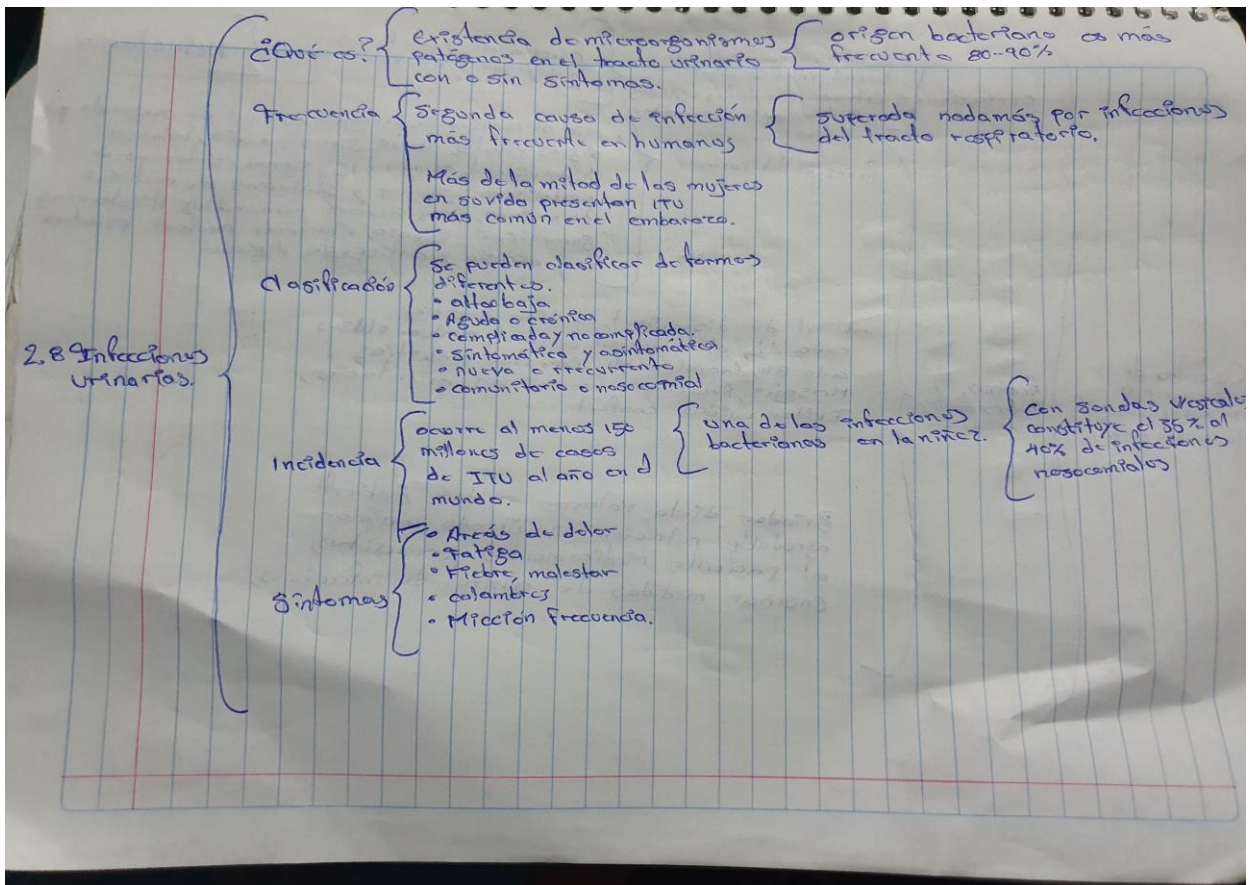 ¿Qué es?
existencia de microorganismos
patógenos en el tracto urinario
con o sin síntomas.
origen bacteriano es más
frecuente 80-90%
Frecuencia
Segunda causa de infección
más frecuente en humanos
superada nadamás por infecciones
del tracto respiratorio.
Más de la mitad de las mujeres
en su vida presentan ITU
más común en el embarazo.
Clasificación
Se pueden clasificar de formas
diferentes.
• alta o baja
• Aguda o crónica
• complicada y no complicada.
• sintomática y asintomática
• nueva o recurrente
• comunitario o nosocomial
2.8 Infecciones
urinarias.
Incidencia
ocurre al menos 150
millones de casos
de ITU al año en el
mundo.
una de las infecciones
bacterianas en la niñez.
Con sondas vesicales
constituye el 35% al
40% de infecciones
nosocomiales
Síntomas
• Areás de dolor
• Fatiga
• Fiebre, malestar
• calambres
• Micción frecuencia.